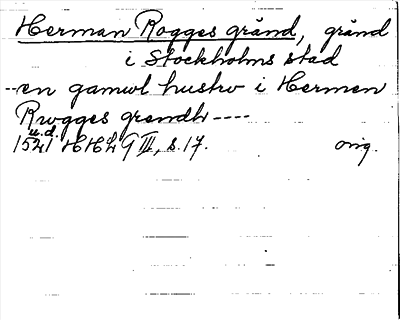 Herman Rogges gränd, gränd
i Stockholms stad
--en gamwl hustrv i Hermen
Rwgges grendh----
u.d.
1521 HH2 G III, s. 17. orig.